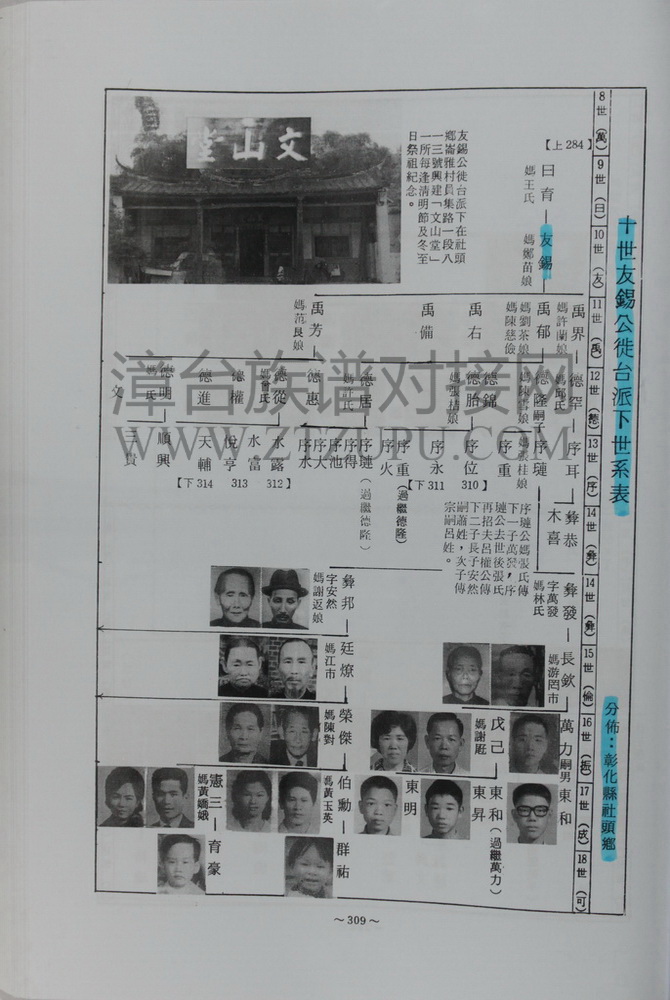 十世友錫公徙台派下世系表
分佈：彰化縣社頭鄉
8世（萬）
9世（日）
10世（友）
11世（禹）
12世（德）
13世（序）
14世（彝）
14世（彝）
15世（倫）
16世（振）
17世（成）
18世（可）
【上284】
日育—友錫
媽王氏
媽鄭苗娘
友錫公徙台派下在社頭
鄉崙雅村員集路一段八
一三號興建「文山堂」
一所每逢清明節及冬至
日祭祖紀念。
文山堂
禹界—德罕—序耳
媽許蘭娘
媽邱氏
禹郁—德隆嗣子—序璉
媽劉茶娘
媽陳慈儉
媽陳雪娘
媽張桂娘
禹右
德錦—序重
德胎—序位
媽張桔娘
序永
禹備
禹芳
媽范良娘
德居
媽杜氏
序重（過繼德隆）
序火
序璉（過繼德隆）
序得
序池
德惠
序大
序水
德從
媽曾氏
水露
水富
德權
悅亨
德進
天輔
德明
媽氏
順興
三貴
文
【下311　310】
【下314　313　312】
彝恭
木喜
序璉公媽張氏傳
下一子萬發，序
璉公去世後張氏
再招夫呂權公傳
下二子長子安然
嗣蕭姓，次子傳
宗嗣呂姓。
彝發—長欽
字萬發
媽林氏
媽游罔市
彝邦—廷燎—榮傑
字安然
媽謝返娘
媽江市
媽陳對
萬力嗣男東和
戊己—東和（過繼萬力）
媽謝
東昇
東明
伯勳—群祐
媽黃玉英
憲三—育豪
媽黃嬌娥
漳台族谱对接网
WWW.ZTZUPU.COM
～309～